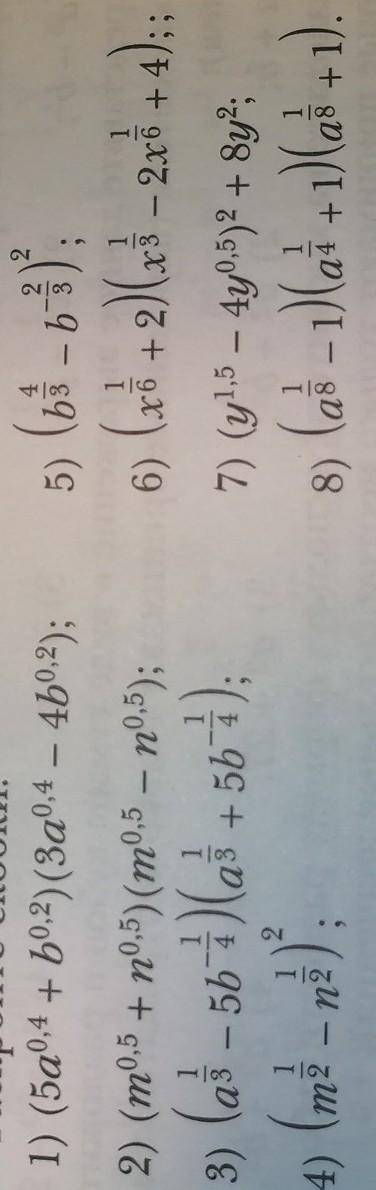 1) (5a^{0,4} + b^{0,2})(3a^{0,4} − 4b^{0,2});
2) (m^{0,5} + n^{0,5})(m^{0,5} − n^{0,5});
3) (a^{\frac{1}{3}} − 5b^{-\frac{1}{4}})(a^{\frac{1}{3}} + 5b^{-\frac{1}{4}});
4) (m^{\frac{1}{2}} − n^{\frac{1}{2}})^2;
5) (b^{\frac{4}{3}} − b^{-\frac{2}{3}})^2;
6) (x^{\frac{1}{6}} + 2)(x^{\frac{1}{3}} − 2x^{\frac{1}{6}} + 4);;
7) (y^{1,5} − 4y^{0,5})^2 + 8y^2;
8) (a^{\frac{1}{8}} − 1)(a^{\frac{1}{4}} + 1)(a^{\frac{1}{8}} + 1).